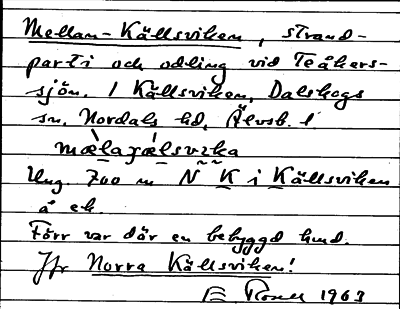 Mellan-Källsviken, strand-
parti och odling vid Teåkers-
sjön. / Källsviken, Dalskogs
sn, Nordals hd, Älvsb. l
Ung. 700 m N K i Källsviken
å ek.
Förr var där en bebyggd lund.
Jfr Norra Källsviken!
1963